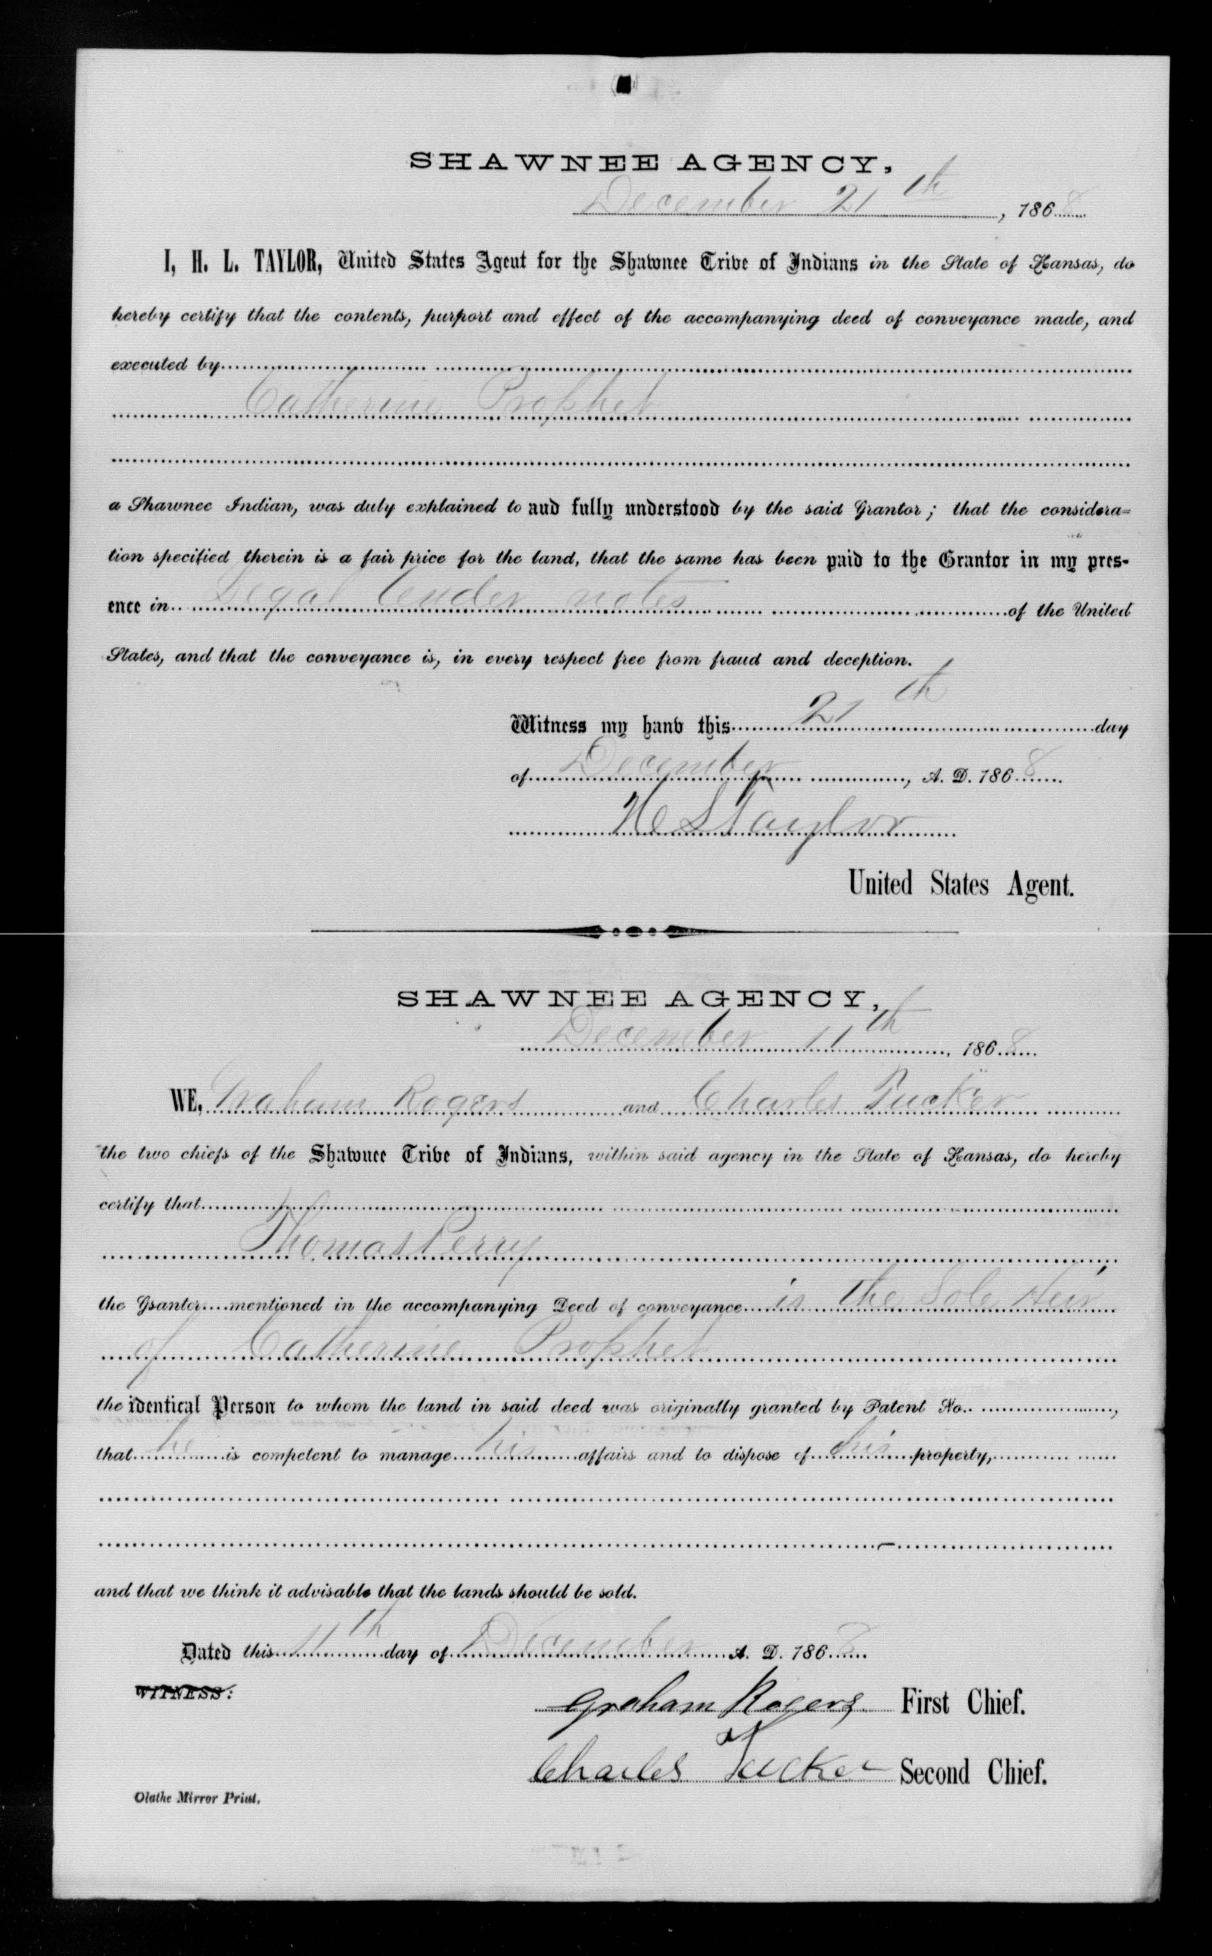 SHAWNEE AGENCY,
December 21th, 1868
I, H. L. TAYLOR, United States Agent for the Shawnee Tribe of Indians in the State of Kansas, do
hereby certify that the contents, purport and effect of the accompanying deed of conveyance made, and
executed by
Catherine Prophet
a Shawnee Indian, was duly explained to and fully understood by the said Grantor; that the considera=
tion specified therein is a fair price for the land, that the same has been paid to the Grantor in my pres-
ence in Legal tender notes of the United
States, and that the conveyance is, in every respect free from fraud and deception.
Witness my hand this 21th day
of December, A. D. 1868
H L Taylor
United States Agent.
SHAWNEE AGENCY,
December 11th, 1868
WE, Graham Rogers and Charles Tucker
the two chiefs of the Shawnee Tribe of Indians, within said agency in the State of Kansas, do hereby
certify that
Thomas Perry
the Grantor mentioned in the accompanying Deed of conveyance is the Sole Heir
of Catherine Prophet
the identical Person to whom the land in said deed was originally granted by Patent No. ,
that he is competent to manage his affairs and to dispose of his property,
and that we think it advisable that the lands should be sold.
Dated this 11th day of December A. D. 1868
WITNESS:
Graham Rogers First Chief.
Charles Tucker Second Chief.
Olathe Mirror Print.